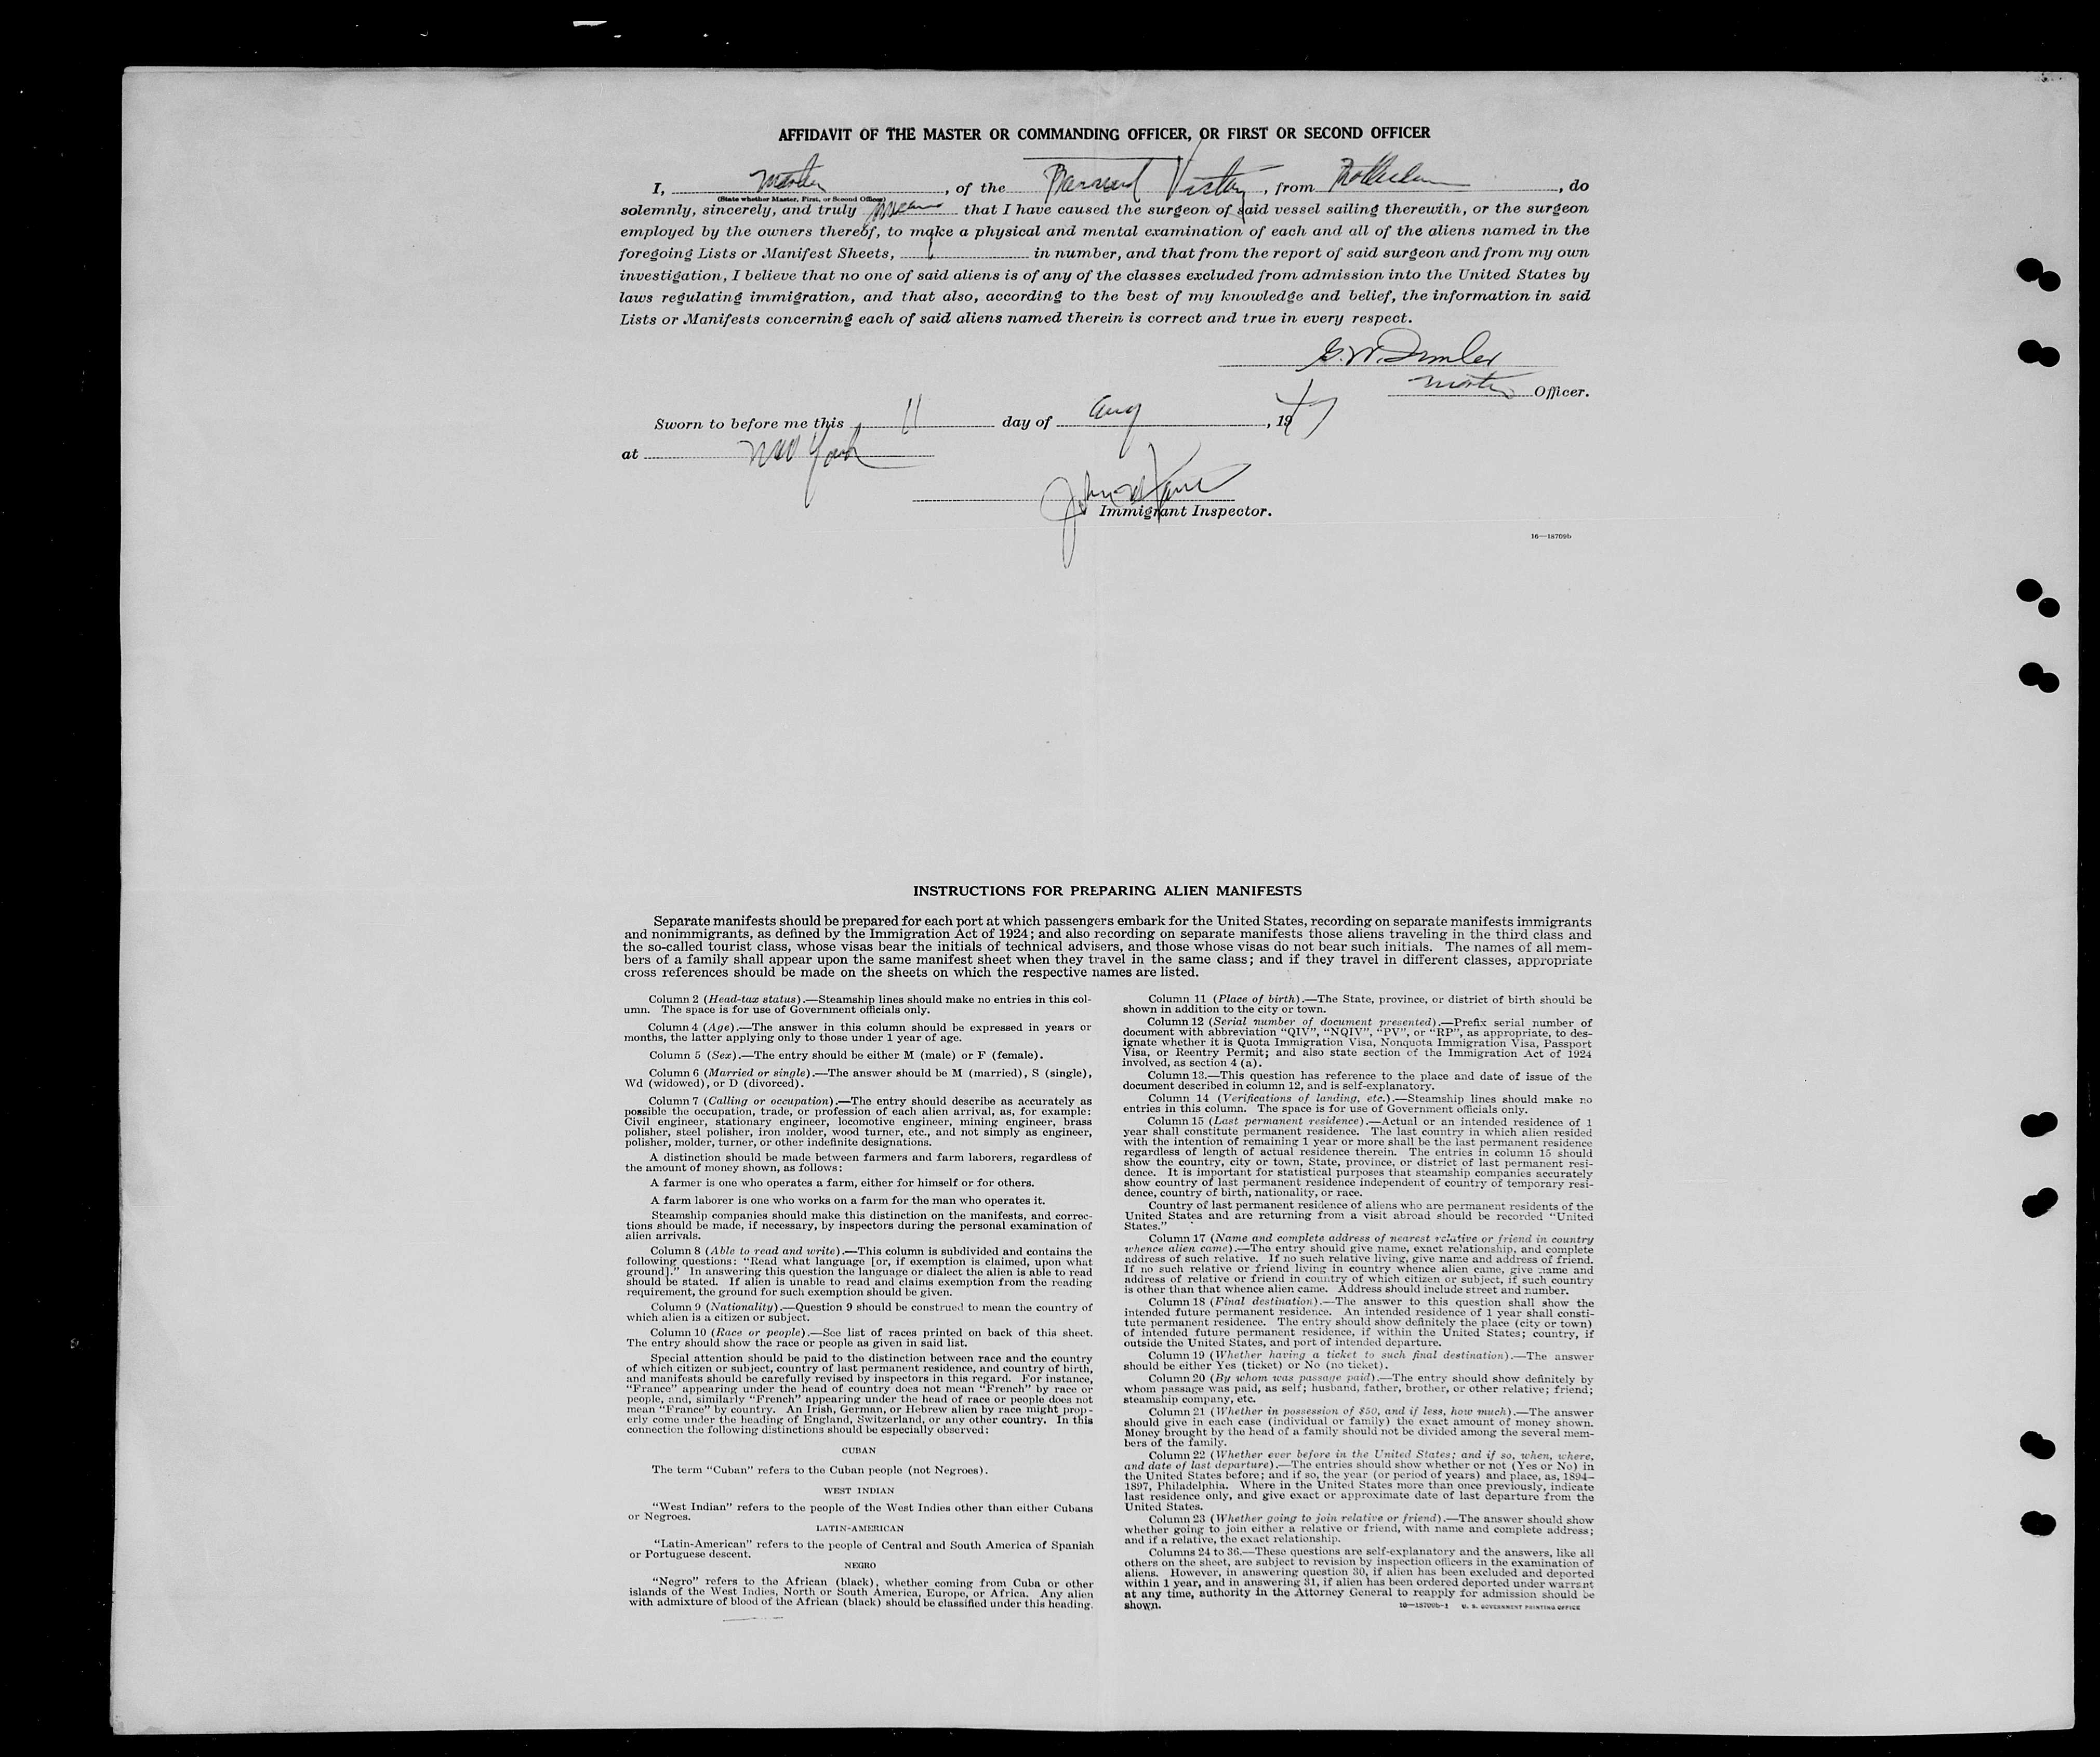 AFFIDAVIT OF THE MASTER OR COMMANDING OFFICER, OR FIRST OR SECOND OFFICER
I, Master, of the Victory, from Rotterdam, do
(State whether Master, First, or Second Officer)
solemnly, sincerely, and truly swear that I have caused the surgeon of said vessel sailing therewith, or the surgeon
employed by the owners thereof, to make a physical and mental examination of each and all of the aliens named in the
foregoing Lists or Manifest Sheets, 1 in number, and that from the report of said surgeon and from my own
investigation, I believe that no one of said aliens is of any of the classes excluded from admission into the United States by
laws regulating immigration, and that also, according to the best of my knowledge and belief, the information in said
Lists or Manifests concerning each of said aliens named therein is correct and true in every respect.
G. W.
Master Officer.
Sworn to before me this 11 day of Aug, 1947
at New York
John
Immigrant Inspector.
16—18709b
INSTRUCTIONS FOR PREPARING ALIEN MANIFESTS
Separate manifests should be prepared for each port at which passengers embark for the United States, recording on separate manifests immigrants
and nonimmigrants, as defined by the Immigration Act of 1924; and also recording on separate manifests those aliens traveling in the third class and
the so-called tourist class, whose visas bear the initials of technical advisers, and those whose visas do not bear such initials. The names of all mem-
bers of a family shall appear upon the same manifest sheet when they travel in the same class; and if they travel in different classes, appropriate
cross references should be made on the sheets on which the respective names are listed.
Column 2 (Head-tax status).—Steamship lines should make no entries in this col-
umn. The space is for use of Government officials only.
Column 4 (Age).—The answer in this column should be expressed in years or
months, the latter applying only to those under 1 year of age.
Column 5 (Sex).—The entry should be either M (male) or F (female).
Column 6 (Married or single).—The answer should be M (married), S (single),
Wd (widowed), or D (divorced).
Column 7 (Calling or occupation).—The entry should describe as accurately as
possible the occupation, trade, or profession of each alien arrival, as, for example:
Civil engineer, stationary engineer, locomotive engineer, mining engineer, brass
polisher, steel polisher, iron molder, wood turner, etc., and not simply as engineer,
polisher, molder, turner, or other indefinite designations.
A distinction should be made between farmers and farm laborers, regardless of
the amount of money shown, as follows:
A farmer is one who operates a farm, either for himself or for others.
A farm laborer is one who works on a farm for the man who operates it.
Steamship companies should make this distinction on the manifests, and correc-
tions should be made, if necessary, by inspectors during the personal examination of
alien arrivals.
Column 8 (Able to read and write).—This column is subdivided and contains the
following questions: "Read what language [or, if exemption is claimed, upon what
ground]." In answering this question the language or dialect the alien is able to read
should be stated. If alien is unable to read and claims exemption from the reading
requirement, the ground for such exemption should be given.
Column 9 (Nationality).—Question 9 should be construed to mean the country of
which alien is a citizen or subject.
Column 10 (Race or people).—See list of races printed on back of this sheet.
The entry should show the race or people as given in said list.
Special attention should be paid to the distinction between race and the country
of which citizen or subject, country of last permanent residence, and country of birth,
and manifests should be carefully revised by inspectors in this regard. For instance,
"France" appearing under the head of country does not mean "French" by race or
people, and, similarly "French" appearing under the head of race or people does not
mean "France" by country. An Irish, German, or Hebrew alien by race might prop-
erly come under the heading of England, Switzerland, or any other country. In this
connection the following distinctions should be especially observed:
CUBAN
The term "Cuban" refers to the Cuban people (not Negroes).
WEST INDIAN
"West Indian" refers to the people of the West Indies other than either Cubans
or Negroes.
LATIN-AMERICAN
"Latin-American" refers to the people of Central and South America of Spanish
or Portuguese descent.
NEGRO
"Negro" refers to the African (black), whether coming from Cuba or other
islands of the West Indies, North or South America, Europe, or Africa. Any alien
with admixture of blood of the African (black) should be classified under this heading.
Column 11 (Place of birth).—The State, province, or district of birth should be
shown in addition to the city or town.
Column 12 (Serial number of document presented).—Prefix serial number of
document with abbreviation "QIV", "NQIV", "PV", or "RP", as appropriate, to des-
ignate whether it is Quota Immigration Visa, Nonquota Immigration Visa, Passport
Visa, or Reentry Permit; and also state section of the Immigration Act of 1924
involved, as section 4 (a).
Column 13.—This question has reference to the place and date of issue of the
document described in column 12, and is self-explanatory.
Column 14 (Verifications of landing, etc.).—Steamship lines should make no
entries in this column. The space is for use of Government officials only.
Column 15 (Last permanent residence).—Actual or an intended residence of 1
year shall constitute permanent residence. The last country in which alien resided
with the intention of remaining 1 year or more shall be the last permanent residence
regardless of length of actual residence therein. The entries in column 15 should
show the country, city or town, State, province, or district of last permanent resi-
dence. It is important for statistical purposes that steamship companies accurately
show country of last permanent residence independent of country of temporary resi-
dence, country of birth, nationality, or race.
Country of last permanent residence of aliens who are permanent residents of the
United States and are returning from a visit abroad should be recorded "United
States."
Column 17 (Name and complete address of nearest relative or friend in country
whence alien came).—The entry should give name, exact relationship, and complete
address of such relative. If no such relative living, give name and address of friend.
If no such relative or friend living in country whence alien came, give name and
address of relative or friend in country of which citizen or subject, if such country
is other than that whence alien came. Address should include street and number.
Column 18 (Final destination).—The answer to this question shall show the
intended future permanent residence. An intended residence of 1 year shall consti-
tute permanent residence. The entry should show definitely the place (city or town)
of intended future permanent residence, if within the United States; country, if
outside the United States, and port of intended departure.
Column 19 (Whether having a ticket to such final destination).—The answer
should be either Yes (ticket) or No (no ticket).
Column 20 (By whom was passage paid).—The entry should show definitely by
whom passage was paid, as self; husband, father, brother, or other relative; friend;
steamship company, etc.
Column 21 (Whether in possession of $50, and if less, how much).—The answer
should give in each case (individual or family) the exact amount of money shown.
Money brought by the head of a family should not be divided among the several mem-
bers of the family.
Column 22 (Whether ever before in the United States; and if so, when, where,
and date of last departure).—The entries should show whether or not (Yes or No) in
the United States before; and if so, the year (or period of years) and place, as, 1894–
1897, Philadelphia. Where in the United States more than once previously, indicate
last residence only, and give exact or approximate date of last departure from the
United States.
Column 23 (Whether going to join relative or friend).—The answer should show
whether going to join either a relative or friend, with name and complete address;
and if a relative, the exact relationship.
Columns 24 to 36.—These questions are self-explanatory and the answers, like all
others on the sheet, are subject to revision by inspection officers in the examination of
aliens. However, in answering question 30, if alien has been excluded and deported
within 1 year, and in answering 31, if alien has been ordered deported under warrant
at any time, authority in the Attorney General to reapply for admission should be
shown.
16—18709b-1 U. S. GOVERNMENT PRINTING OFFICE